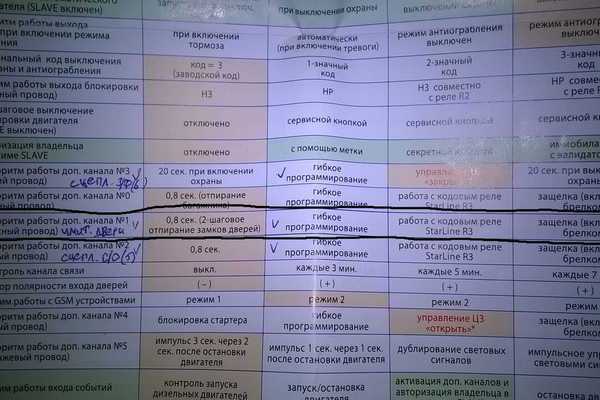 тического
ателя (SLAVE включен)
запуска/выключ.
при выключении охраны
выключении
ритм работы выхода
и при включении режима
ения
при включении
тормоза
автоматически
(при включении тревоги)
режим антиограбления
выключен
режим антиограб
включен
нальный код выключения
аны и антиограбления
код = 3
(заводской код)
1-значный
код
2-значный
код
3-значн
код
ритм работы выхода блокировки
ый провод)
НЗ
НР
НЗ совместно
с реле R2
НР совмес
с реле R
шаговое выключение
ировки двигателя
E выключен)
отключено
сервисной кнопкой
сервисной кнопкой
сервисной кно
изация владельца
име SLAVE
отключено
с помощью метки
секретной кнопкой
иммобилай
с валидато
оритм работы доп. канала №3
й провод)
20 сек. при включении
охраны
гибкое
программирование
управле
«закры
20 сек. при вклю
охраны
оритм работы доп. канала №0
й провод)
0,8 сек. (отпирание
багажника)
гибкое
программирование
работа с кодовым реле
StarLine R3
защелка (вкл
брелком
оритм работы доп. канала №1
й провод)
имит. двери
0,8 сек. (2-шаговое
отпирание замков дверей)
гибкое
программирование
работа с кодовым реле
StarLine R3
защелка (вкл
брелком
оритм работы доп. канала №2
й провод)
0,8 сек.
гибкое
программирование
работа с кодовым реле
StarLine R3
защелка (вкл
брелком
троль канала связи
выкл.
каждые 3 мин.
каждые 5 мин.
каждые 7
ор полярности входа дверей
(–)
(+)
(+)
(+)
им работы с GSM устройствами
режим 1
режим 2
режим 2
режим
оритм работы доп. канала №4
й провод)
блокировка стартера
гибкое
программирование
управление ЦЗ
«открыть»*
защелка (вкл
брелко
оритм работы доп. канала №5
нжевый провод)
импульс 3 сек. через 2
сек. после остановки
двигателя
импульс 1 сек. через 1 сек.
после остановки двигателя
дублирование световых
сигналов
импульсное упр
световыми сиг
им работы входа событий
контроль запуска
дизельных двигателей
запуск/остановка
двигателя
активация доп. каналов и
авторизация владельца в
остановка дв